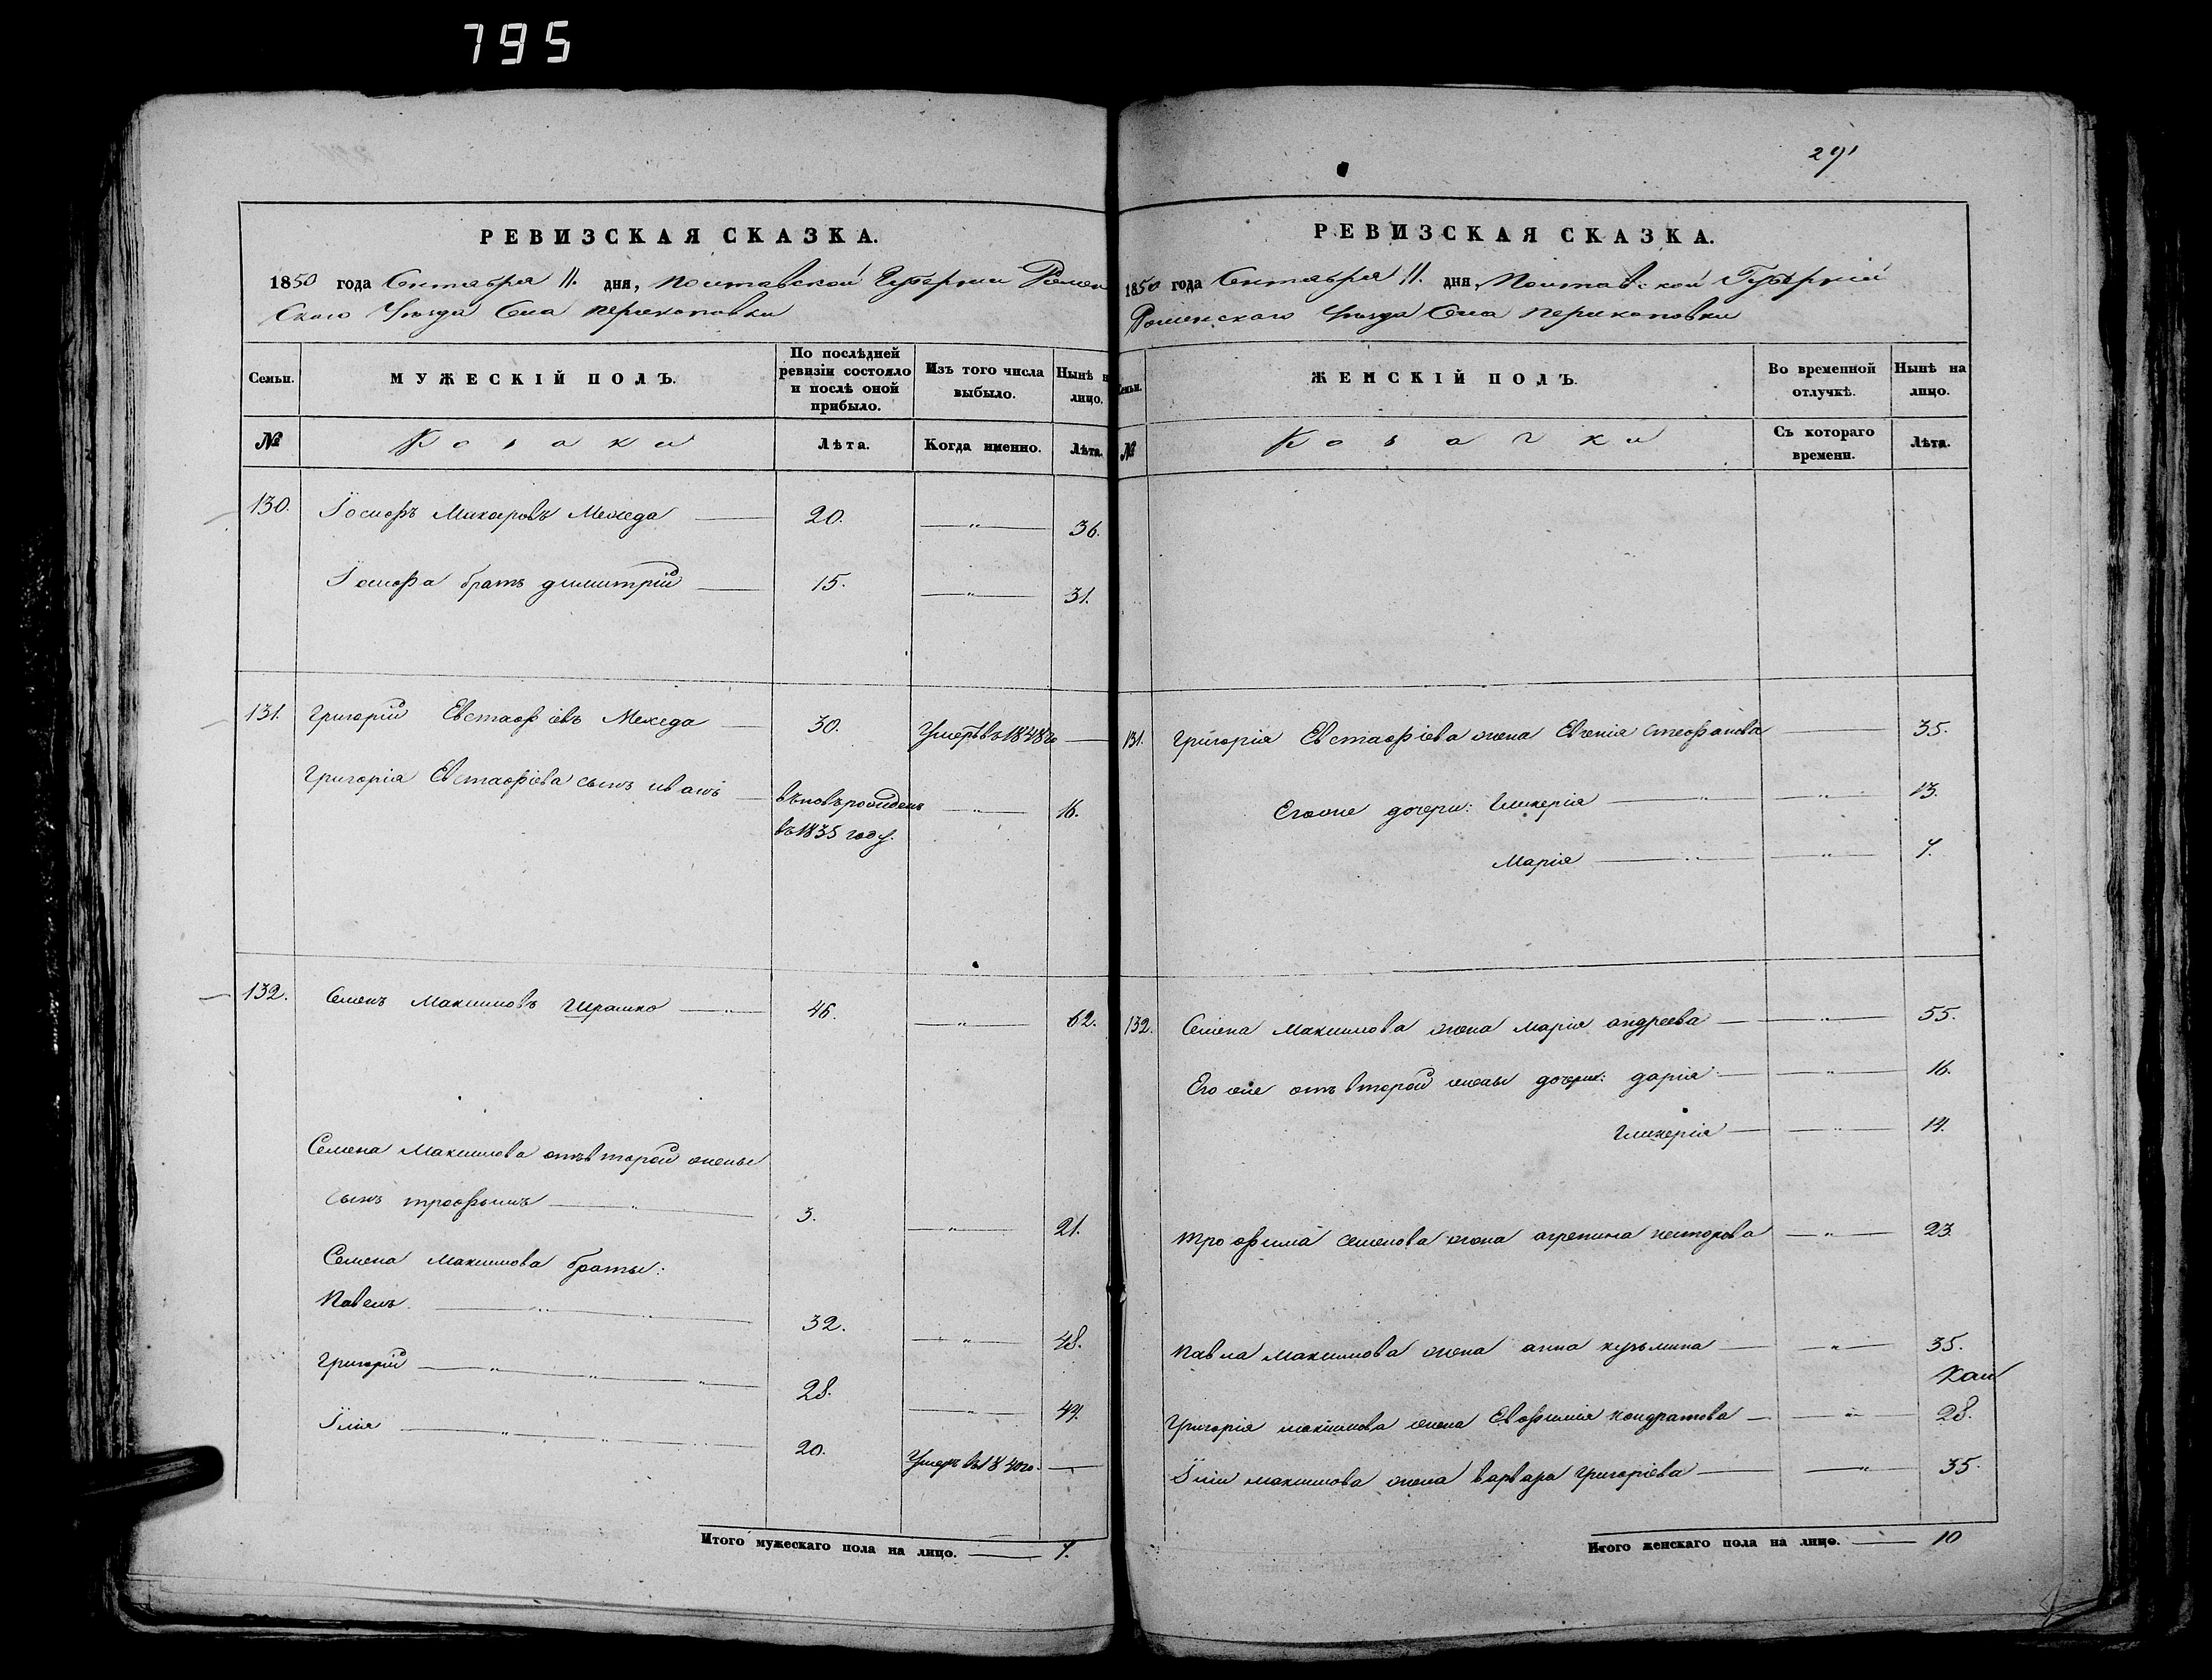 795
РЕВИЗСКАЯ СКАЗКА.
1850 года Сентября 11. дня, Полтавской Губернии Ромен
скаго Уѣзда Села Перекоповки
Семьи.
МУЖЕСКІЙ ПОЛЪ.
По послѣдней ревизіи состояло и послѣ оной прибыло.
Изъ того числа выбыло.
Нынѣ на лицо.
№
Козаки
Лѣта.
Когда именно.
Лѣта.
130. Іосифъ Макаровъ Межеда 20. — " — 36.
Іосифа братъ димитрій 15. — " — 31.
131. Григорій Евстафіевъ Межеда 30. Умеръ въ 1848го —
Григорія Евстафіева сынъ иванъ вновь рожденъ — " — 16.
въ 1835 году.
132. Семенъ Максимовъ 46. — " — 62.
Семена Максимова отъ второй жены
сынъ трофимъ 3. — " — 21.
Семена Максимова братья:
Павелъ 32. — " — 48.
Григорій 28. — " — 44.
Ілія 20. Умеръ въ 1840го. —
Итого мужескаго пола на лицо. — 7.
291
РЕВИЗСКАЯ СКАЗКА.
1850 года Сентября 11. дня, Полтавской Губерніи
Роменскаго Уѣзда Села Перекоповки
Семьи.
ЖЕНСКІЙ ПОЛЪ.
Во временной отлучкѣ.
Нынѣ на лицо.
№
Козачки
Съ котораго времени.
Лѣта.
131. Григорія Евстафіева жена Евгенія стефанова — 35.
Егоже дочери: Гликерія — " — 13.
Марія — " — 7.
132. Семена Максимова жена марія андреева — " — 55.
Его же отъ второй жены дочери: дарія — " — 16.
Гликерія — " — 14.
трофима семенова жена агрепина несторова — " — 23.
Павла максимова жена анна кузьмина — " — 35.
Григорія максимова жена Евфимія кондратова — " — 28.
Іліи максимова жена варвара григоріева — " — 35.
Итого женскаго пола на лицо. — 10